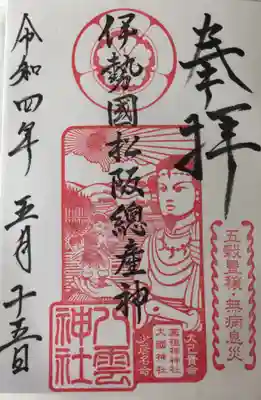 奉拝
伊勢國松阪總産神
令和四年 五月十五日
五穀豊穣・無病息災
大己貴命
薬祖神神社
大國神社
少彦名命
八雲
神社